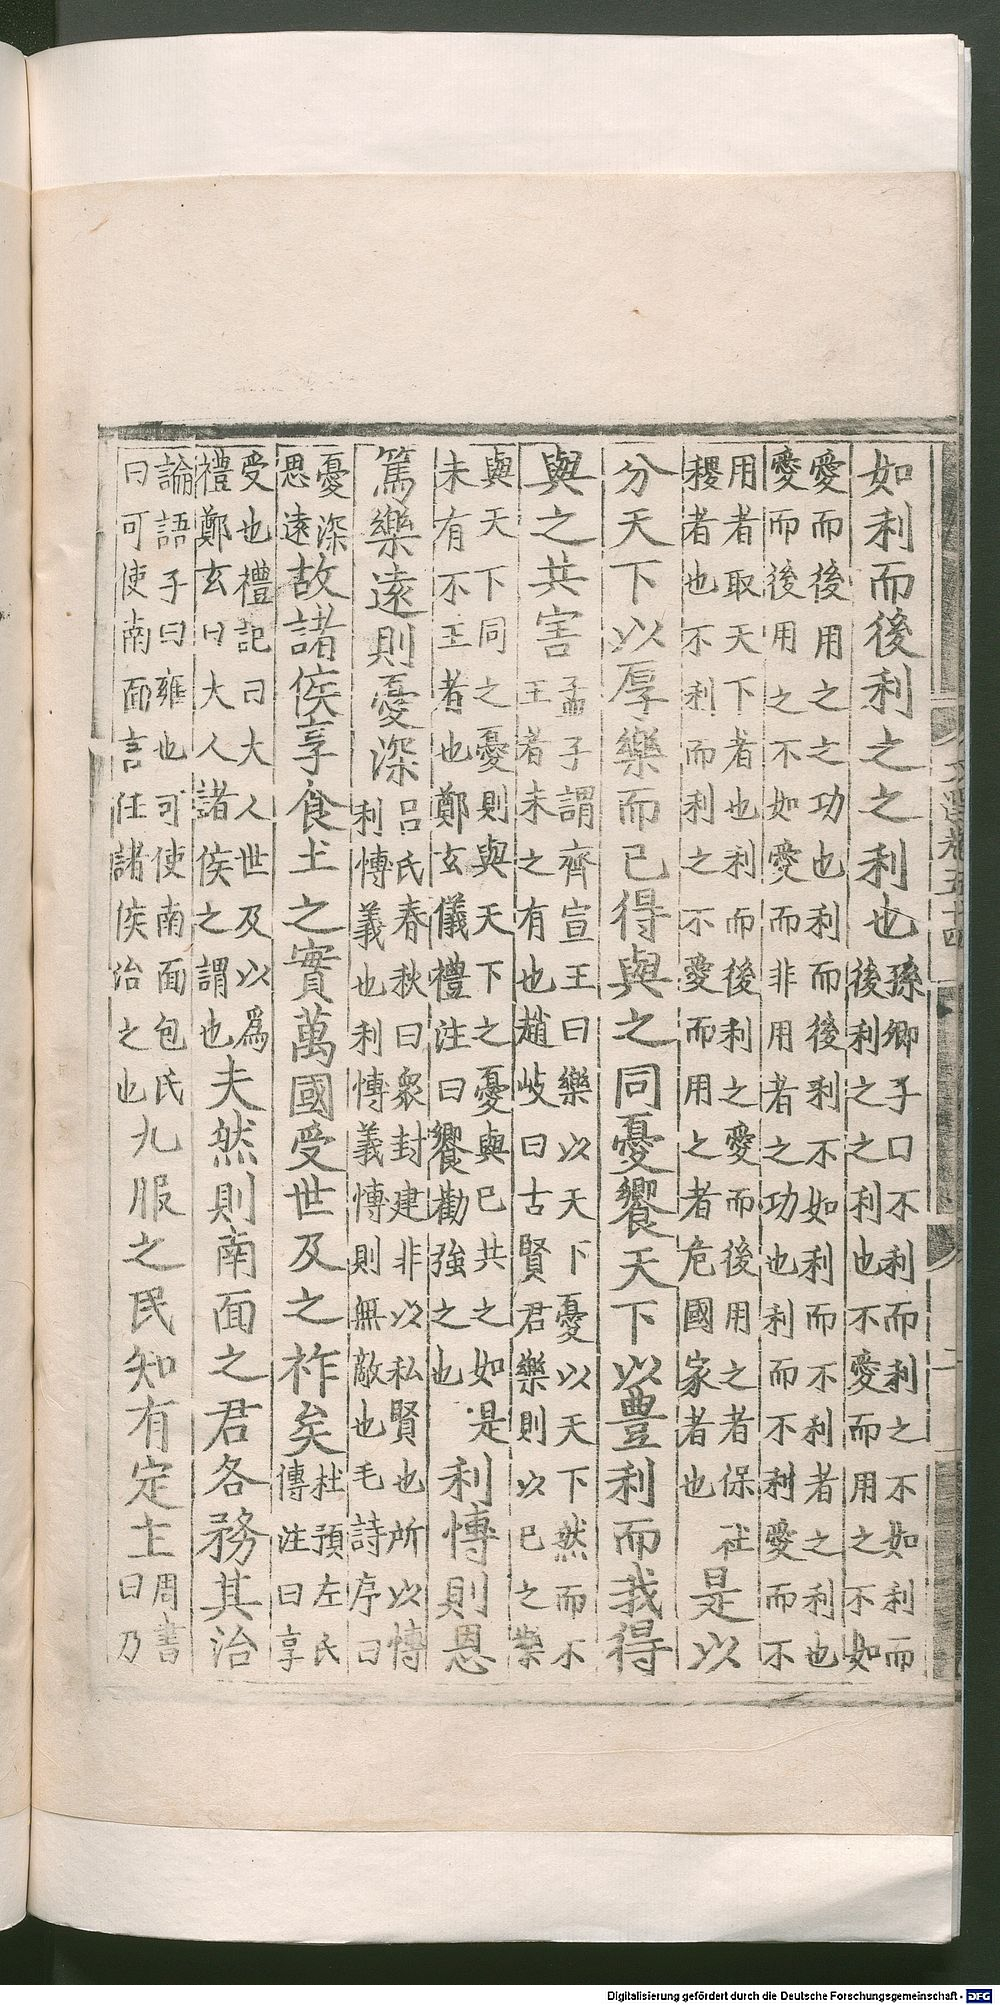 如利而後利之之利也孫卿子口不利而利之不如利而
後利之之利也不愛而用之不如
愛而後用之之功也利而後利不如利而不利者之利也
愛而後用之不如愛而非用者之功也利而不利愛而不
用者取天下者也利而後利之愛而後用之者保社
稷者也不利而利之不愛而用之者危國家者也是以
分天下以厚樂而已得與之同憂饗天下以豊利而我得
與之共害孟子謂齊宣王曰樂以天下憂以天下然而不
王者未之有也趙岐曰古賢君樂則以已之樂
與天下同之憂則與天下之憂與已共之如是
未有不王者也鄭玄儀禮注曰饗勸強之也利愽則恩
篤樂遠則憂深呂氏春秋曰衆封建非以私賢也所以愽
利愽義也利愽義愽則無敵也毛詩序曰
憂深
思遠故諸侯享食土之實萬國受世及之祚矣杜預左氏
傳注曰享
受也禮記曰大人世及以爲
禮鄭玄曰大人諸侯之謂也夫然則南面之君各務其治
論語子曰雍也可使南面包氏
曰可使南面言任諸侯治之也九服之民知有定主周書
曰乃
卷五十四
二
Digitalisierung gefördert durch die Deutsche Forschungsgemeinschaft - DFG